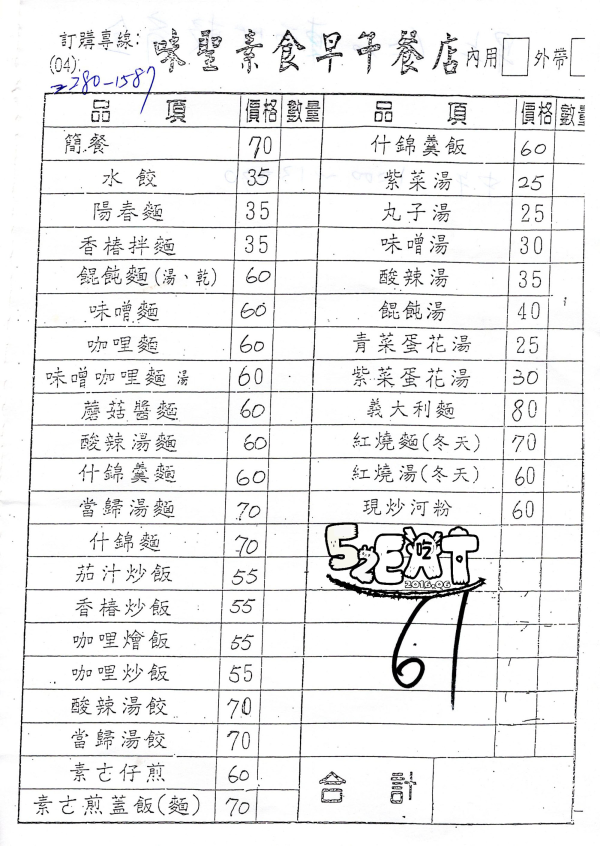 訂購專線: 味聖素食早午餐店 內用 外帶
(04)
2380-1587
品項 價格 數量 品項 價格 數量
簡餐 70 什錦羹飯 60
水餃 35 紫菜湯 25
陽春麵 35 丸子湯 25
香椿拌麵 35 味噌湯 30
餛飩麵(湯、乾) 60 酸辣湯 35
味噌麵 60 餛飩湯 40
咖哩麵 60 青菜蛋花湯 25
味噌咖哩麵 湯 60 紫菜蛋花湯 30
蘑菇醬麵 60 義大利麵 80
酸辣湯麵 60 紅燒麵(冬天) 70
什錦羹麵 60 紅燒湯(冬天) 60
當歸湯麵 70 現炒河粉 60
什錦麵 70
茄汁炒飯 55
香椿炒飯 55
咖哩燴飯 55
咖哩炒飯 55
酸辣湯餃 70
當歸湯餃 70
素古仔煎 60 合計
素古煎蓋飯(麵) 70
52EAT 吃
2016.06
61